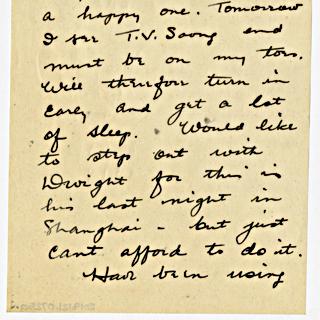 a happy one. Tomorrow
I see T.V. Soong and
must be on my toes.
Will therefore turn in
early and get a lot
of sleep. Would like
to step out with
Dwight for this is
his last night in
Shanghai - but just
can't afford to do it.
Have been using